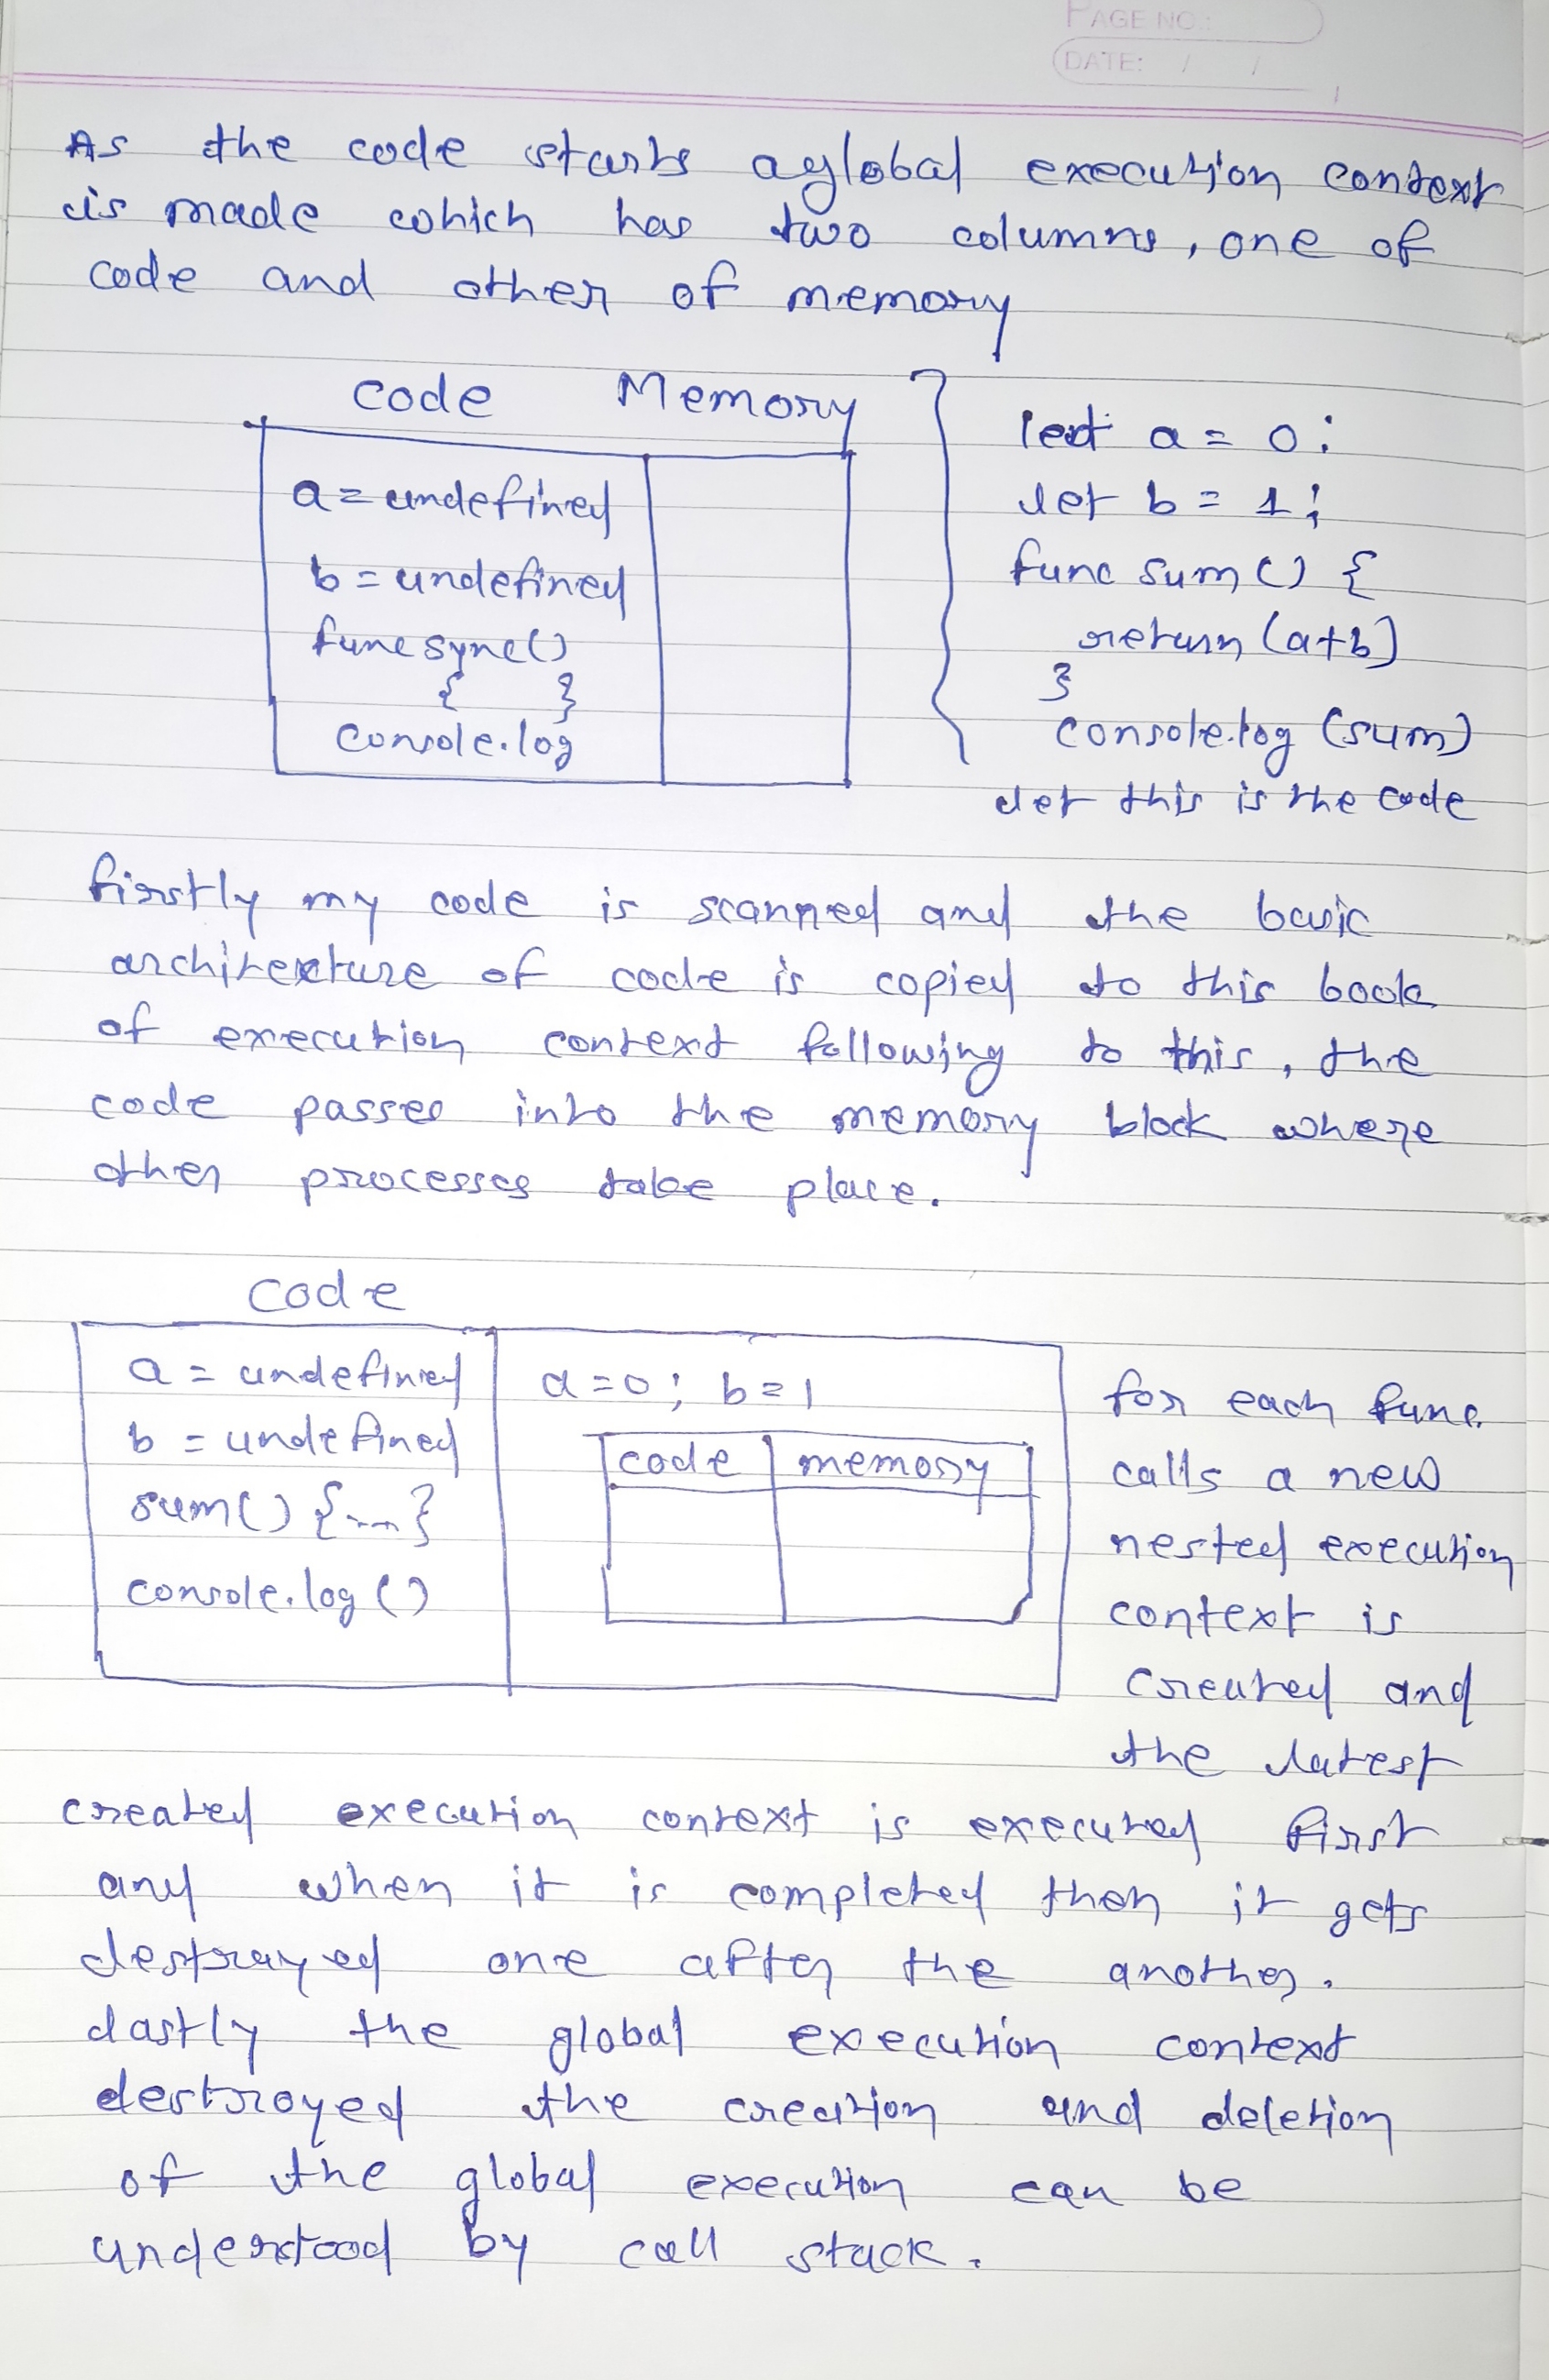 PAGE NO.:
DATE: / /
As the code starts a global execution context
is made which has two columns, one of
code and other of memory
code Memory
a = undefined
b = undefined
func sync()
{ }
console.log
let a = 0;
let b = 1;
func sum() {
return (a+b)
}
console.log (sum)
let this is the code
firstly my code is scanned and the basic
architexture of code is copied to this book
of execution context following to this, the
code passes into the memory block where
other processes take place.
code
a = undefined
b = undefined
sum() {...}
console.log()
a=0; b=1
code memory
for each func.
calls a new
nested execution
context is
created and
the latest
created execution context is executed first
and when it is completed then it gets
destroyed one after the another.
lastly the global execution context
destroyed the creation and deletion
of the global execution can be
understood by call stack.